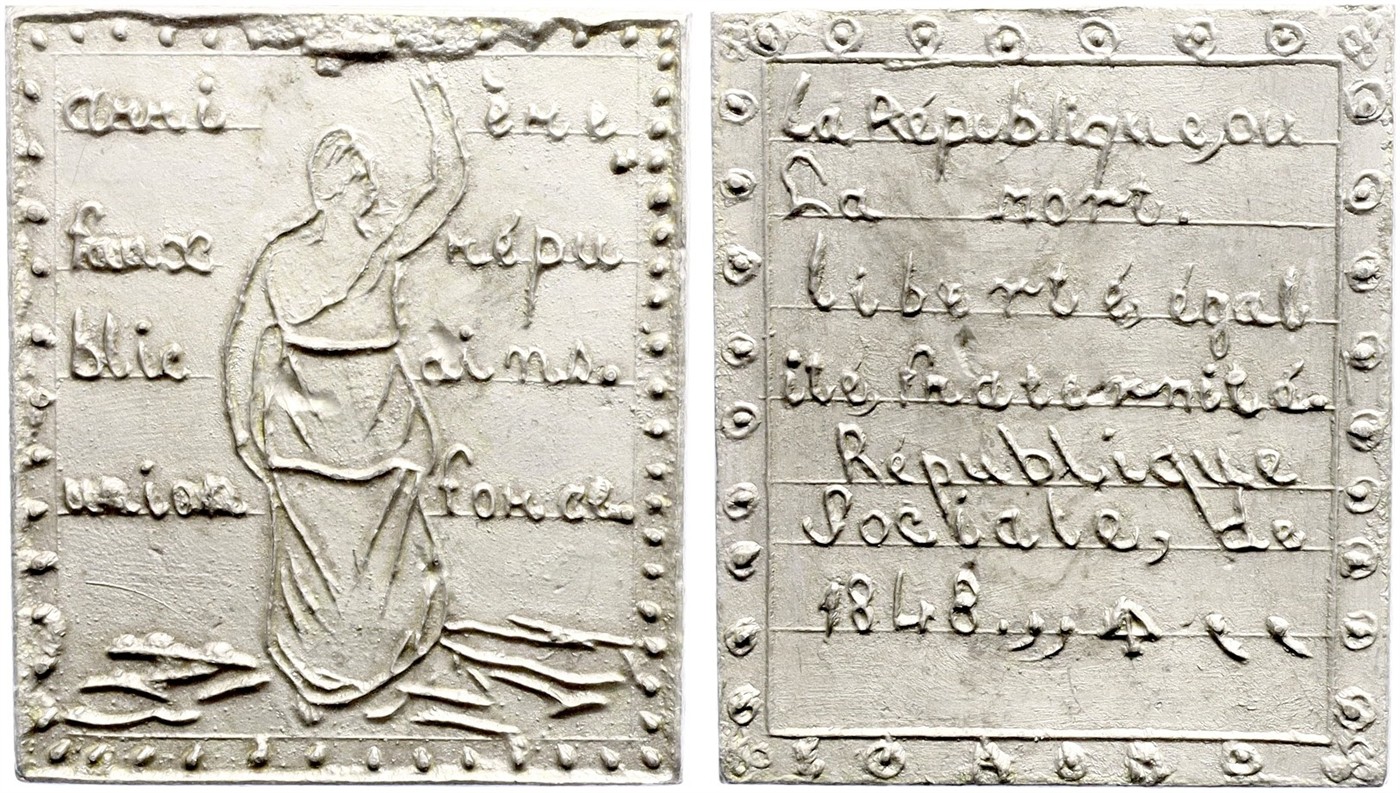 arri ère
faux répu
blic ains.
union force.
la République, ou
La mort.
liberté, égal
ité, fraternité.
République
Sociale, de
1848.